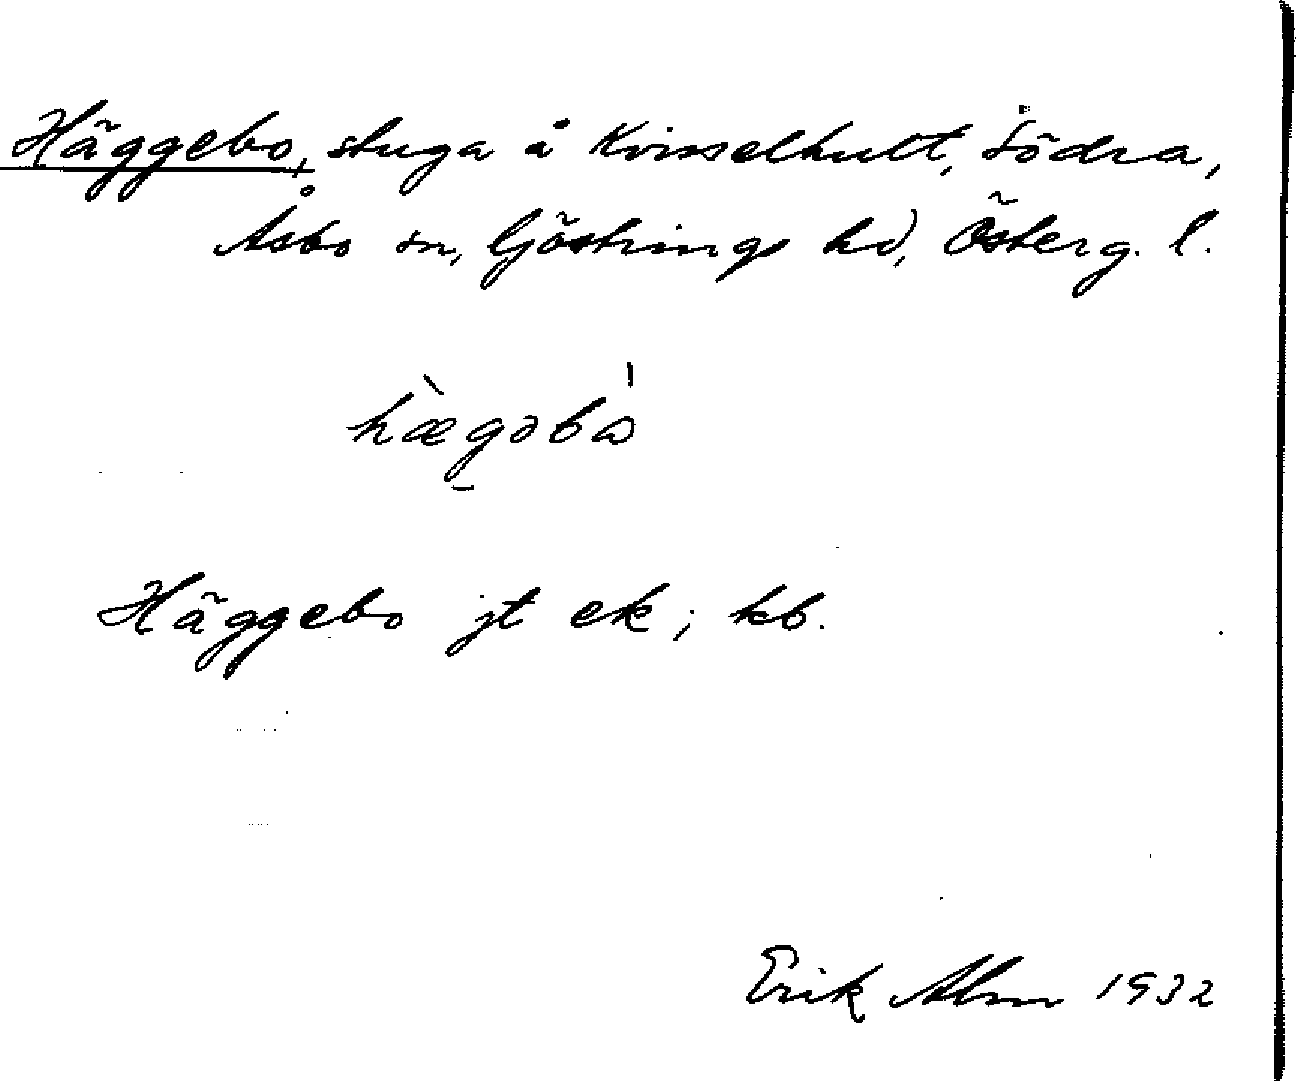 Häggebo, stuga å Kvisselhult, Södra,
Åsbo sn, Göstrings hd, Österg. l.
hægəbω
Häggebo jt ek; kb.
Erik Alm 1932